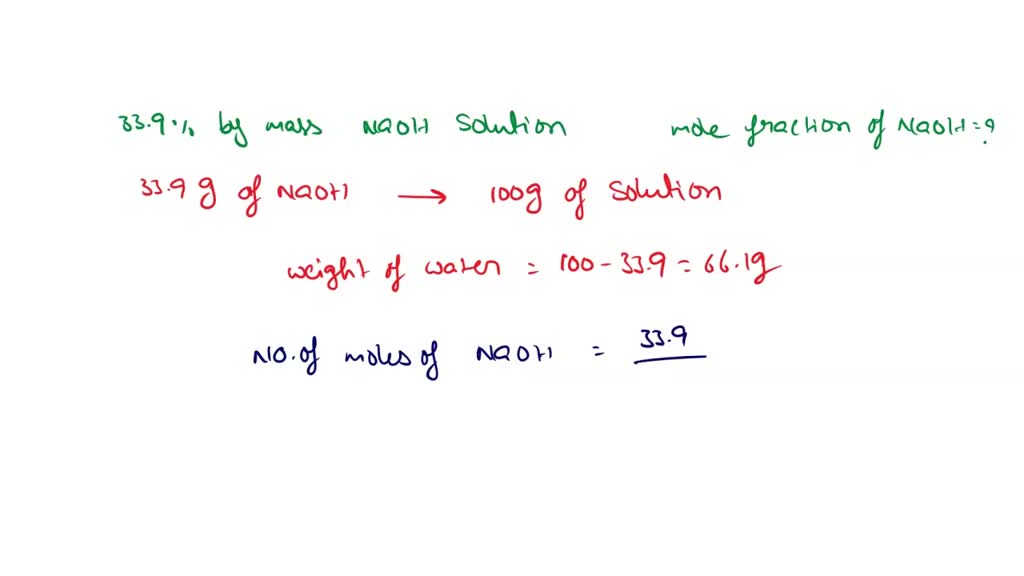 33.9% by mass NaOH solution mole fraction of NaOH = ?
33.9 g of NaOH → 100g of solution
weight of water = 100 - 33.9 = 66.1g
NO. of moles of NaOH = 33.9